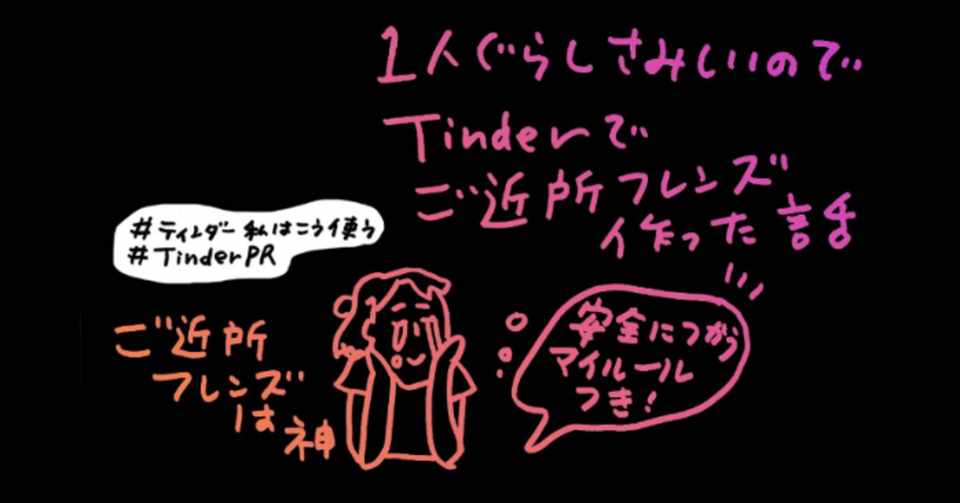 1人ぐらしさみしいので
Tinderで
ご近所フレンズ
作った話
#ティンダー私はこう使う
#TinderPR
ご近所
フレンズ
は
神
安全につかう
マイルール
つき!